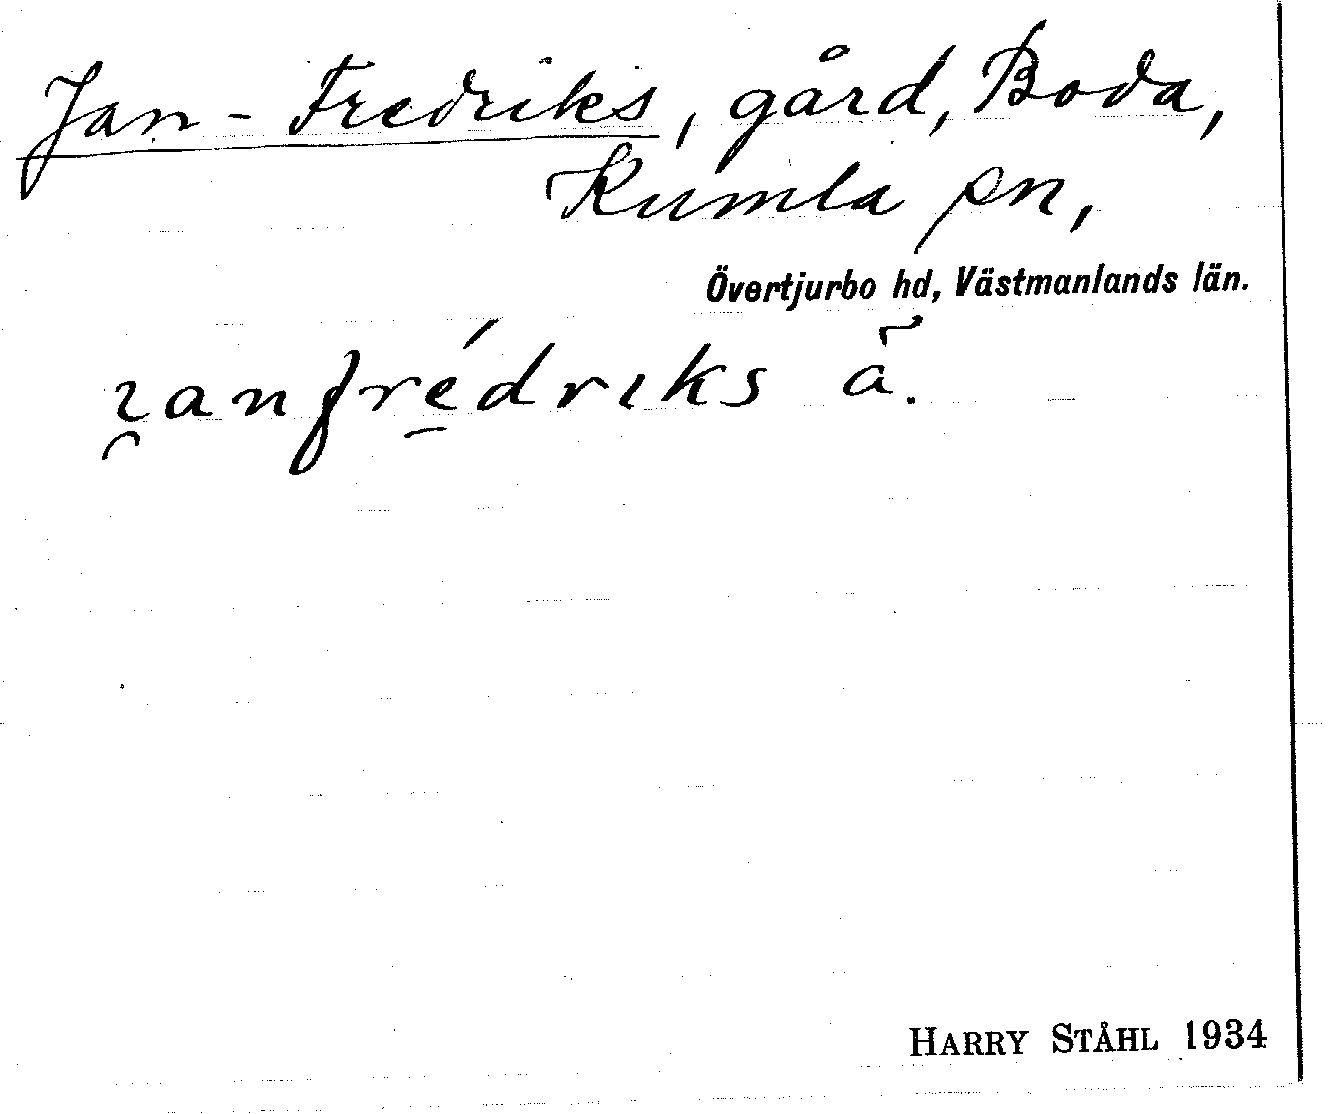 Jan-Fredriks, gård, Boda,
Kumla sn,
Övertjurbo hd, Västmanlands län.
i̯anfré̱driks ã.
HARRY STÅHL 1934